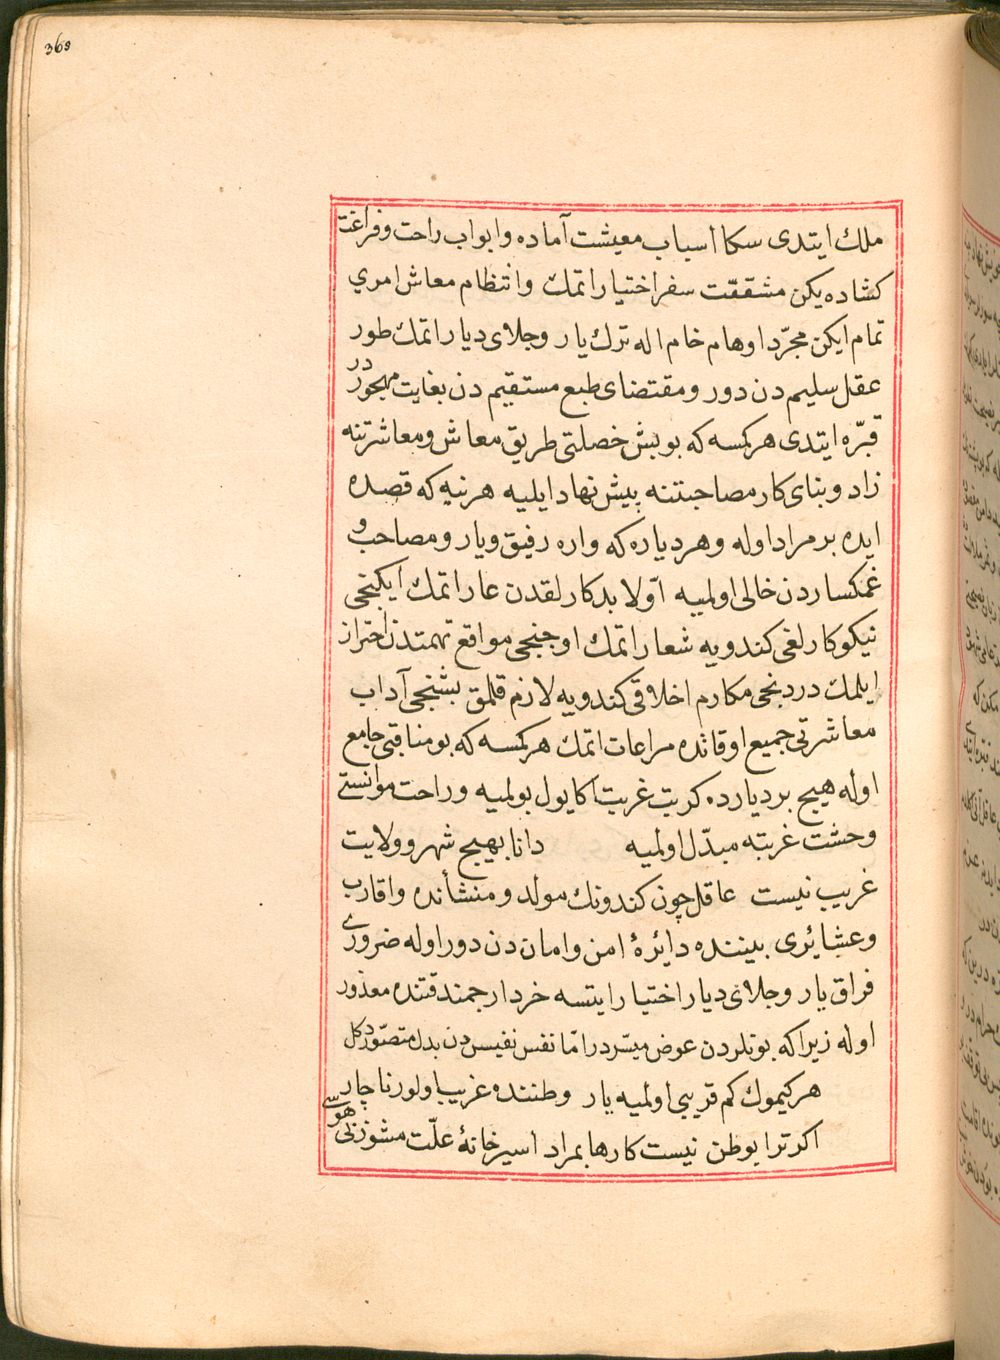 369
ملك ايتدى سكا اسباب معيشت آماده و ابواب راحت و فراغت
كشاده يكن مشققت سفر اختيار اتمك وانتظام معاش امري
تمام ايكن مجرّد اوهام خام اله ترك يار وجلاى ديار اتمك طور
عقل سليم دن دور و مقتضاى طبع مستقيم دن بغايت مهجور در
قبّره ايتدى هر كمسه كه بو بش خصلتى طريق معاش و معاشرتنه
زاد و بناى كار مصاحبتنه پيش نهاد ايليه هر نيه كه قصد
ايده بر مراد اوله وهر دياره كه واره رفيق و يار و مصاحب و
غمكساردن خالى اولميه اوّلا بدكارلقدن عار اتمك ايكنجى
نيكوكارلغى كندويه شعار اتمك اوجنجى مواقع تهمتدن احتراز
ايلمك دردنجى مكارم اخلاقى كندويه لازم قلمق بشنجى آداب
معاشرتى جميع اوقاتده مراعات اتمك هر كمسه كه بو مناقبى جامع
اوله هيچ بر ديارده كربت غربت اكا يول بولميه وراحت موانستى
وحشت غربته مبدّل اولميه دانا بهيچ شهر و ولايت
غريب نيست عاقل چون كندونك مولد و منشأنده واقارب
وعشايرى بيننده دايرهٔ امن وامان دن دور اوله ضرورى
فراق يار وجلاى ديار اختيار ايتسه خردارجمند قتنده معذور
اوله زيرا كه بونلردن عوض ميسّر در امّا نفس نفيس دن بدل متصوّر دكل
هر كيموك كم قريبى اولميه يار وطننده غريب اولور ناچار
اكر ترا بوطن نيست كارها بمراد اسير خانهٔ علّت مشو ز بى هوسى